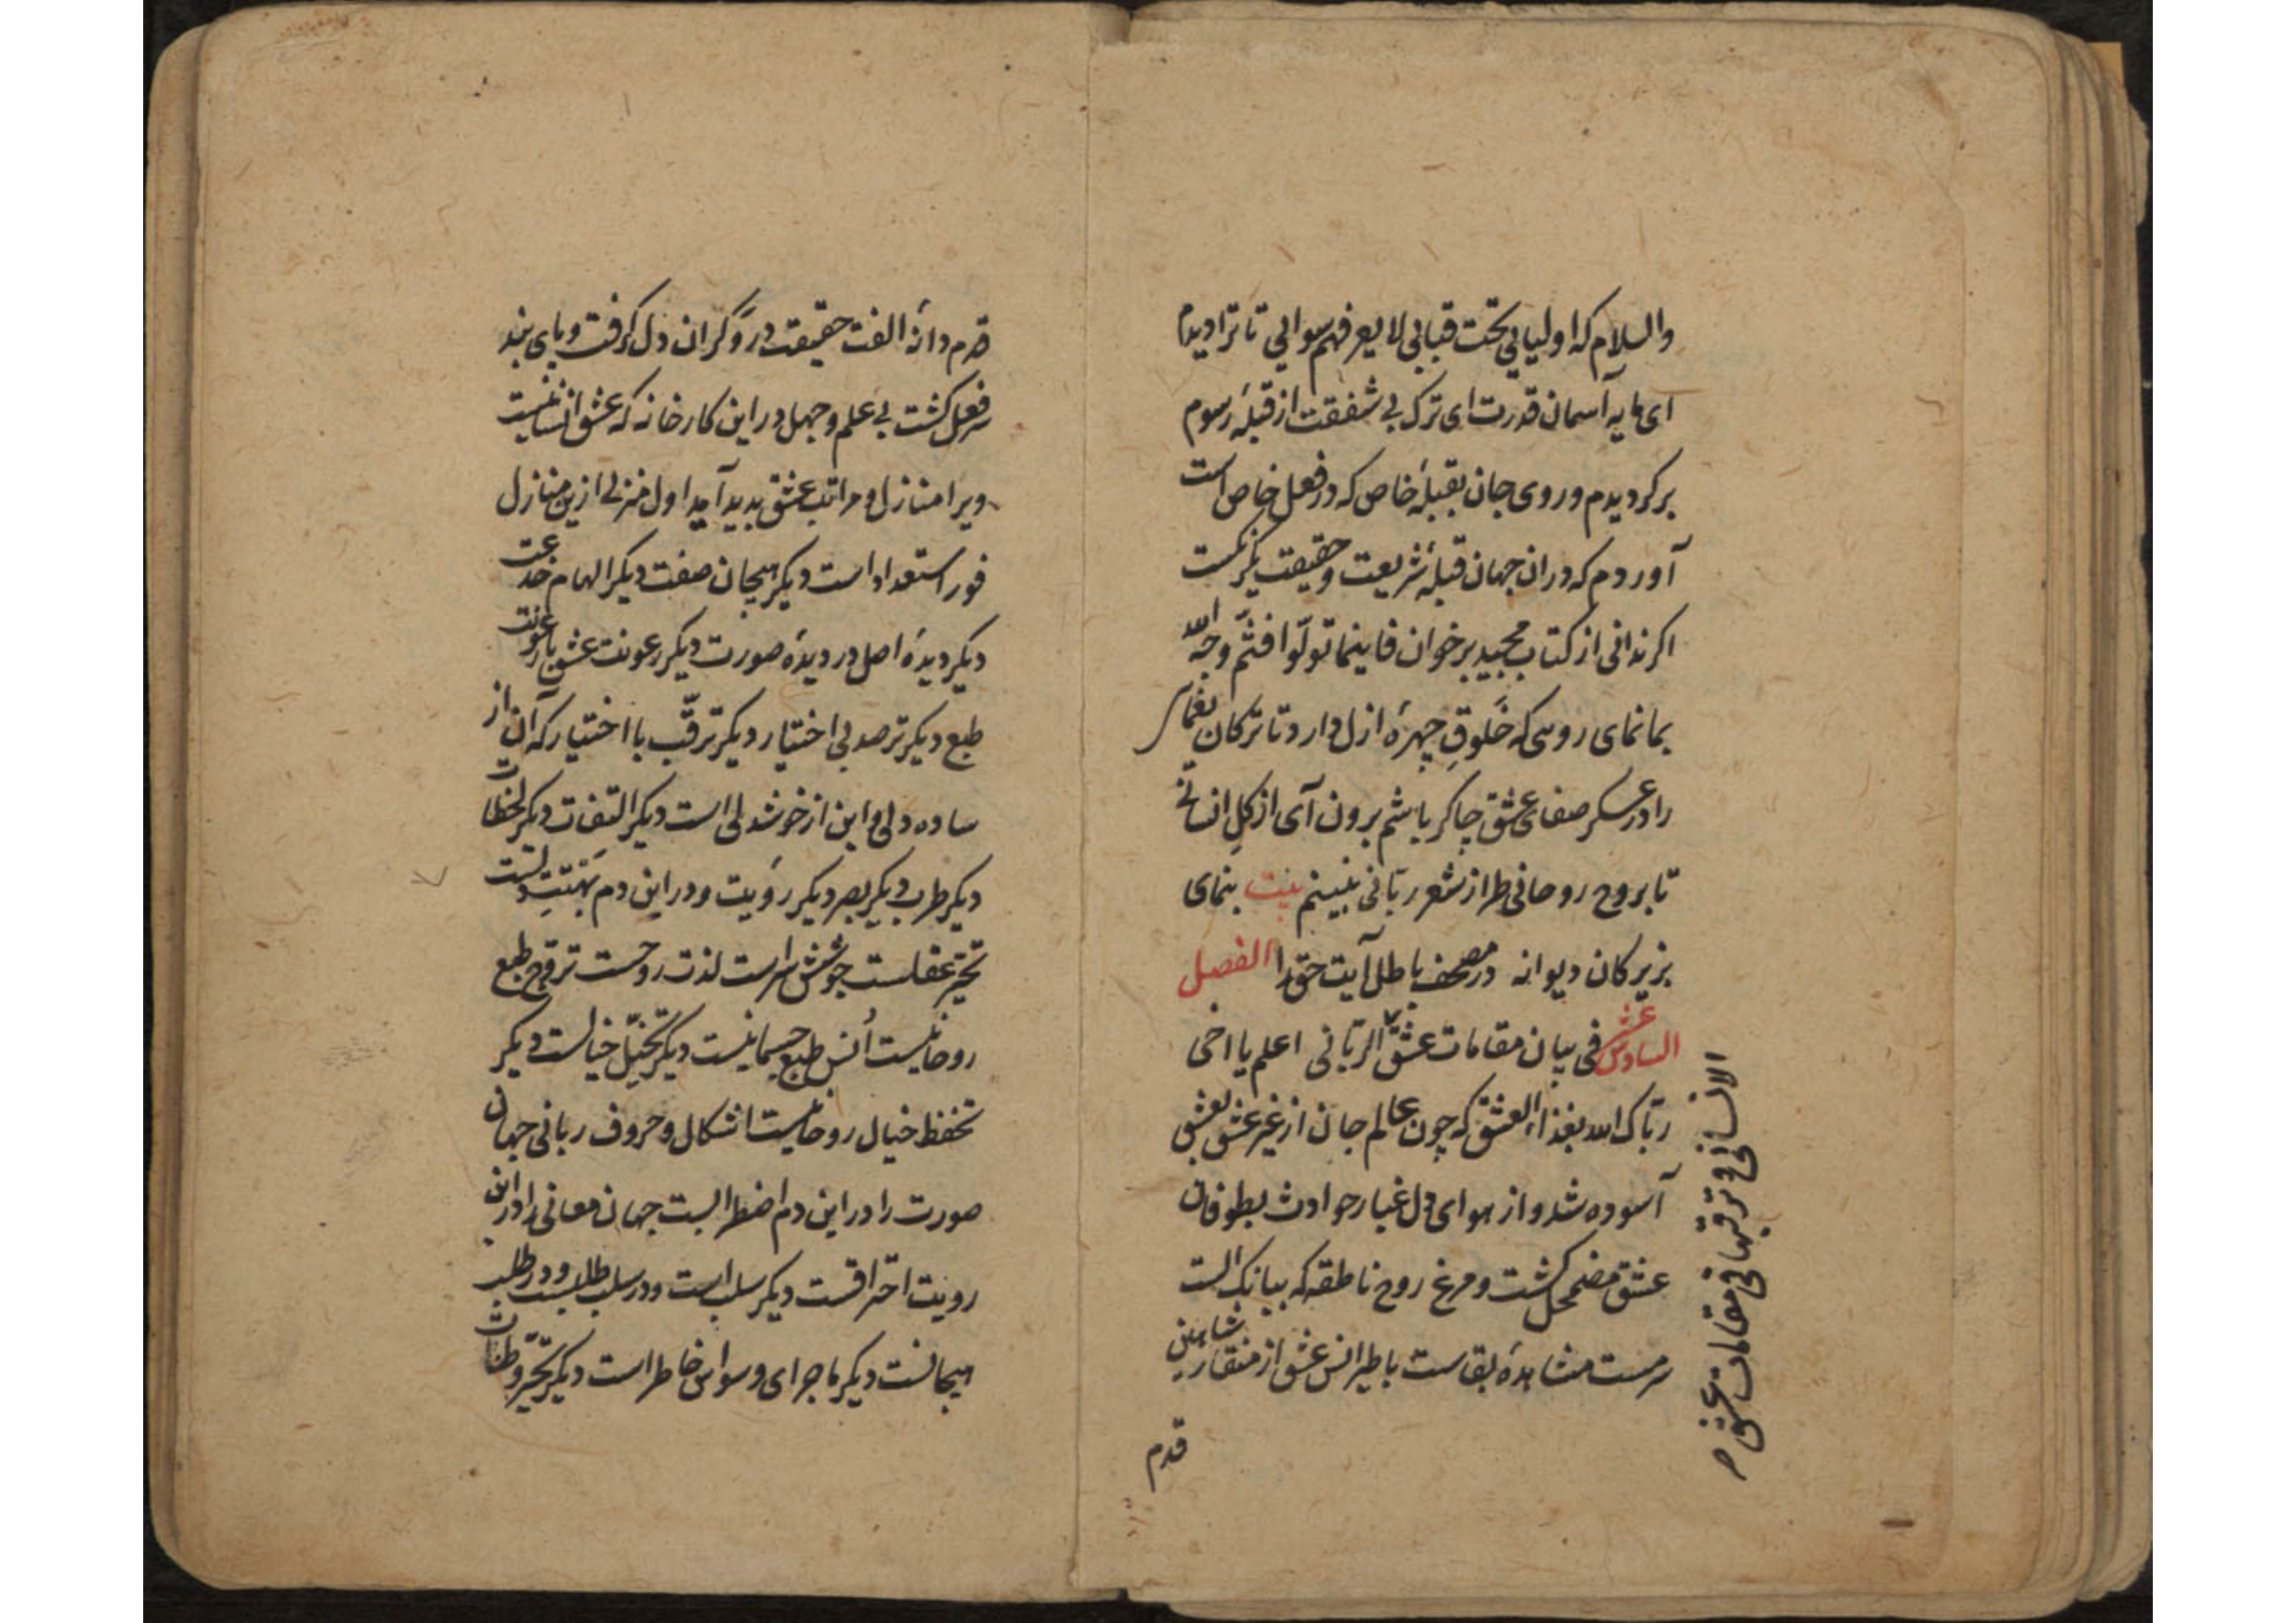 والسلام که اولیایی تحت قبابی لا یعرفهم سوایی تا ترا دیدم
ای مایه آسمان قدرت ای ترک بی شفقت از قبلهٔ رسوم
برکردیدم و روی جان بقبلهٔ خاص که در فعل خاص است
آوردم که در ان جهان قبلهٔ شریعت و حقیقت یکریست
اکر ندانی از کتاب مجید برخوان فاینما تولّوا فثمّ وجه الله
بما نمای رویی که خَلوقِ چهرهٔ ازل دارد تا ترکان یغما
را در عسکر صفای عشق چاکر باشم برون آی از کل انسانی
تا بروح روحانی طراز شعر ربّانی ببینم بیت بنمای
بزیرکان دیوانه در مصحف باطل آیت حق را الفصل
السادس عشر فی بیان مقامات عشق الربّانی اعلم یا اخی
ربّاک الله بغذاء العشق که چون عالم جان از غیر عشق بعشق
آسوده شد و از هوای دل غبار حوادث بطوفان
عشق مضمحل کشت و مرغ روح ناطقه که ببانک الست
سرمست مشاهدهٔ بقاست با طیران عشق از منقار شاهین
قدم
الانسانی و ترقیها فی مقامات عشق
قدم دانهٔ الفت حقیقت در وکر ان دل کرفت و پای بند
سر فعل کشت بی علم و جهل در این کارخانه که عشق انسانیست
ویرا منازل و مراتب عشق بدید آید اول منزلی ازین منازل
فور استعداد است دیکر هیجان صفت دیکر الهام خدعت
دیکر دیدهٔ اصل در دیدهٔ صورت دیکر رعونت عشق با رعونت
طبع دیکر ترصد بی اختیار دیکر ترقّب با اختیار که آن از
ساده دلی و این از خوشدلی است دیکر التفات دیکر لحظات
دیکر طرب دیکر بصر دیکر رؤیت و در این دم بهتت دلست
تحیّر عقلست جوشش سرّاست لذت روحست تروّح طبع
روحانیست اُنس طبع جسمانیست دیکر تخیّل خیالست دیکر
تحفظ خیال روحانیست اشکال و حروف ربانی جهان
صورت را در این دم اضطرابست جهان معانی را در این
رویت احتراقست دیکر سلب است و در سلب طلبست و در طلب
هیجانست دیکر ماجرای وسواس خاطر است دیکر تحیّر و طنات